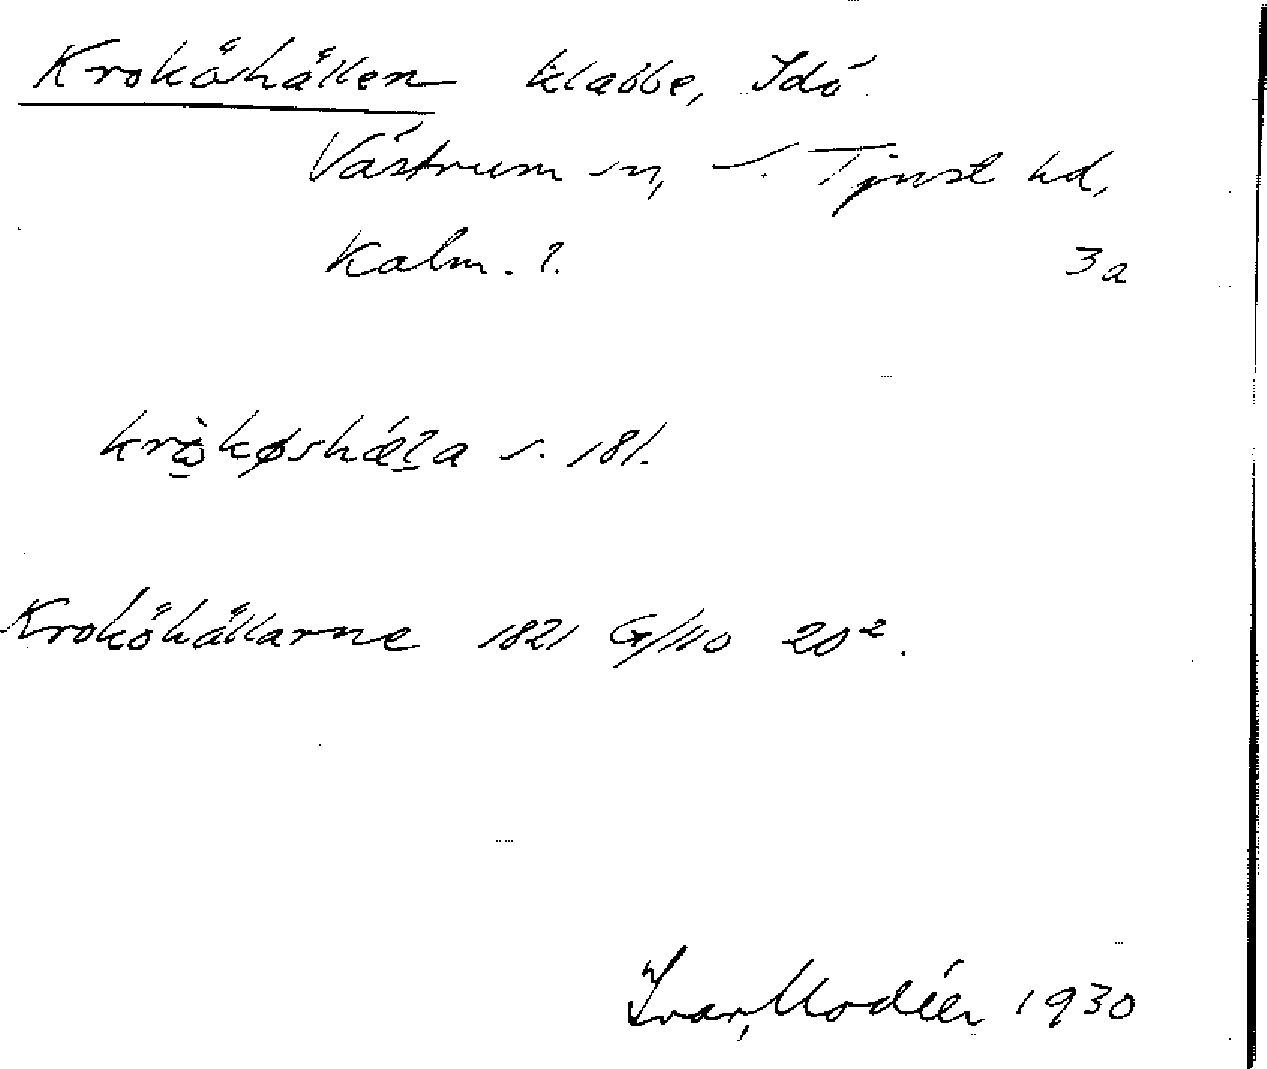 Kroköhällen klabbe, Idö
Västrum sn, S. Tjust hd,
Kalm. l.
3a
s. 181.
Kroköhällarne 1821 G/110 20².
Ivar Modéer 1930